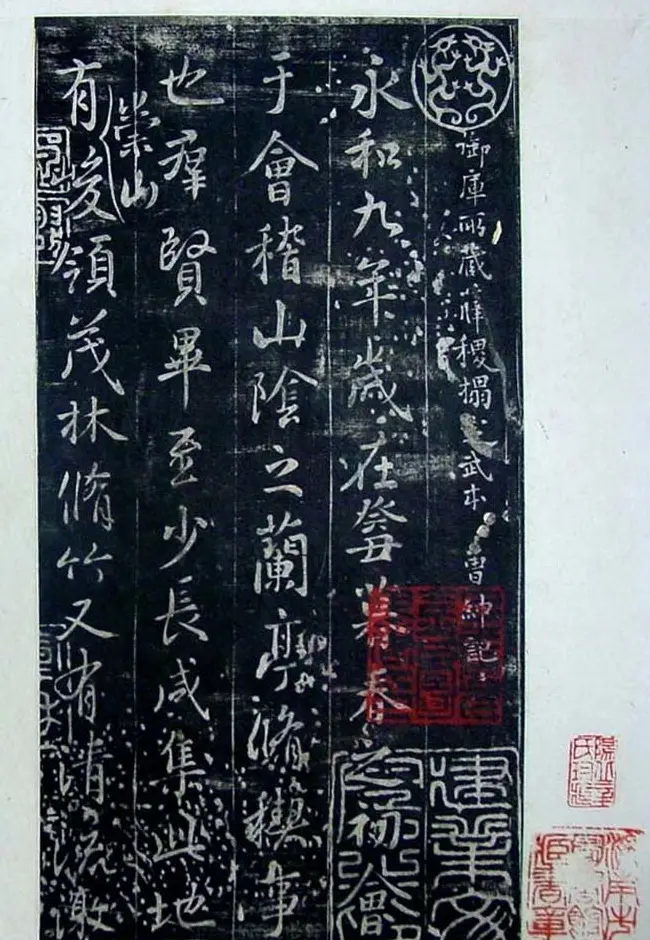 御庫所藏薛稷搨武本曹紳記
永和九年歲在癸丑暮春之初會
于會稽山陰之蘭亭脩稧事
也羣賢畢至少長咸集此地
有崇山峻領茂林脩竹又有清流激
建業文